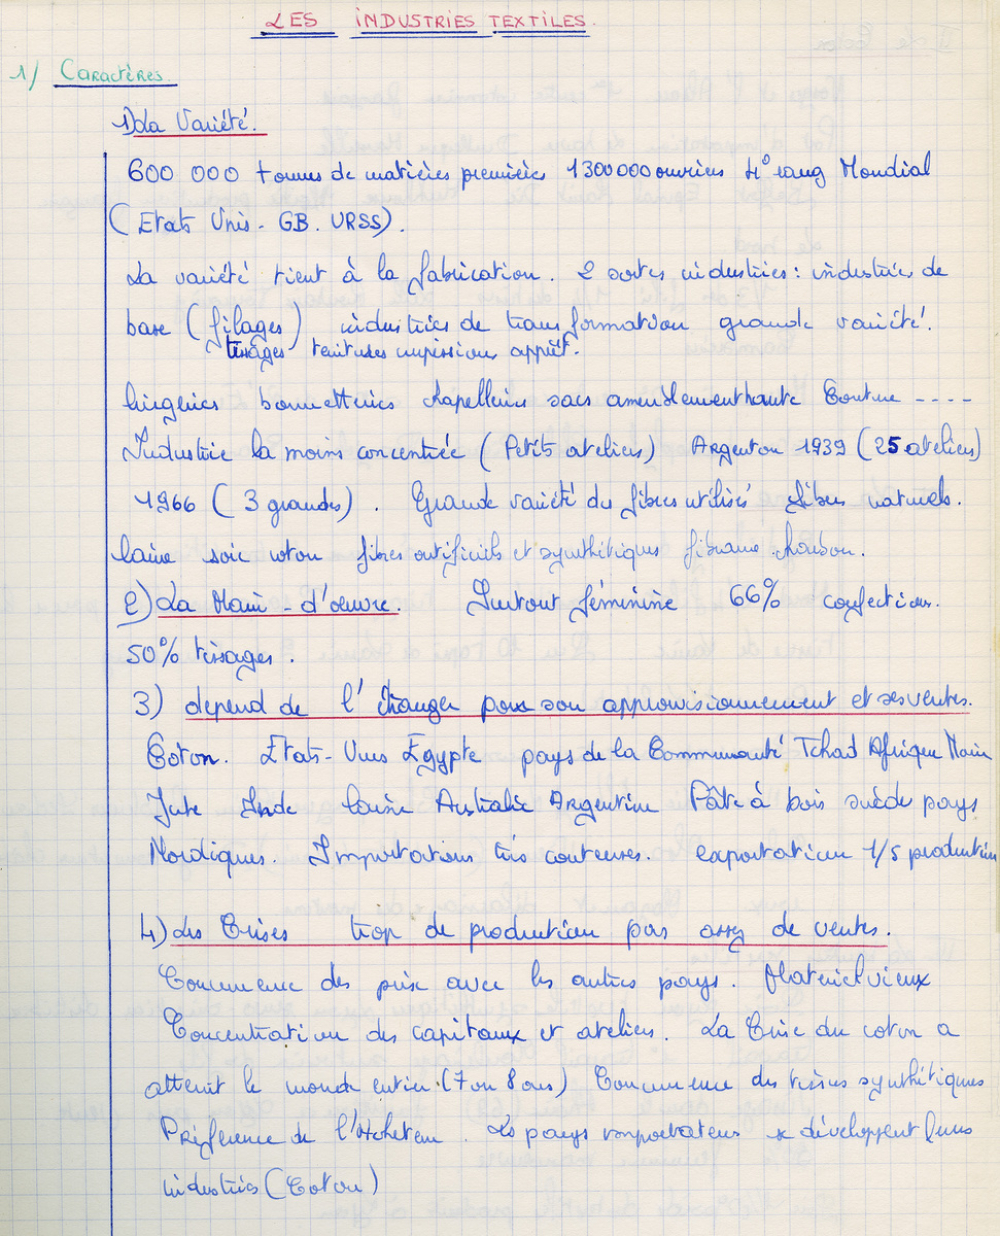 LES INDUSTRIES TEXTILES.
1/ Caractères.
1) La Variété.
600 000 tonnes de matières premières 1300000 ouvriers 4° rang Mondial
(Etats Unis - GB. URSS).
La variété tient à la fabrication. 2 sortes industries: industries de
base (filages) industries de transformation grande variété.
tissages teintures impression apprêt.
lingeries bonnetteries chapelleries sacs ameublement haute Couture ----
Industrie la moins concentrée (Petits ateliers) Argenton 1939 (25 ateliers)
1966 (3 grandes). Grande variété des fibres utilisés fibres naturels.
laine soie coton fibres artificiels et synthétiques fibranne
2) La Main-d'œuvre. Surtout féminine 66% confections.
50% tissages.
3) depend de l'étranger pour son approvisionnement et ses ventes.
Coton. Etats-Unis Egypte pays de la Communauté Tchad Afrique Noire
Jute Inde laine Australie Argentine Pâte à bois suède pays
Nordiques. Importations très couteuses. exportation 1/5 production
4) Les Crises trop de production pas assez de ventes.
Concurrence des prix avec les autres pays. Materiel vieux
Concentration des capitaux et ateliers. La Crise du coton a
atteint le monde entier (7 ou 8 ans) Concurrence des tissus synthétiques
Préférence de l'Acheteur. Les pays importateurs se développent leurs
industries (Coton)